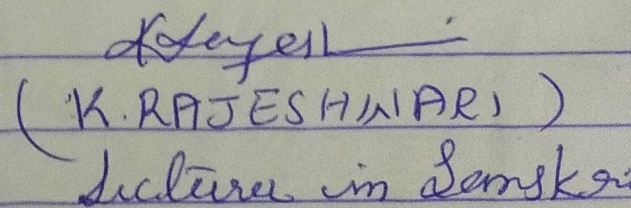 KRajesh
(K. RAJESHWARI)
Lecturer in Sanskri